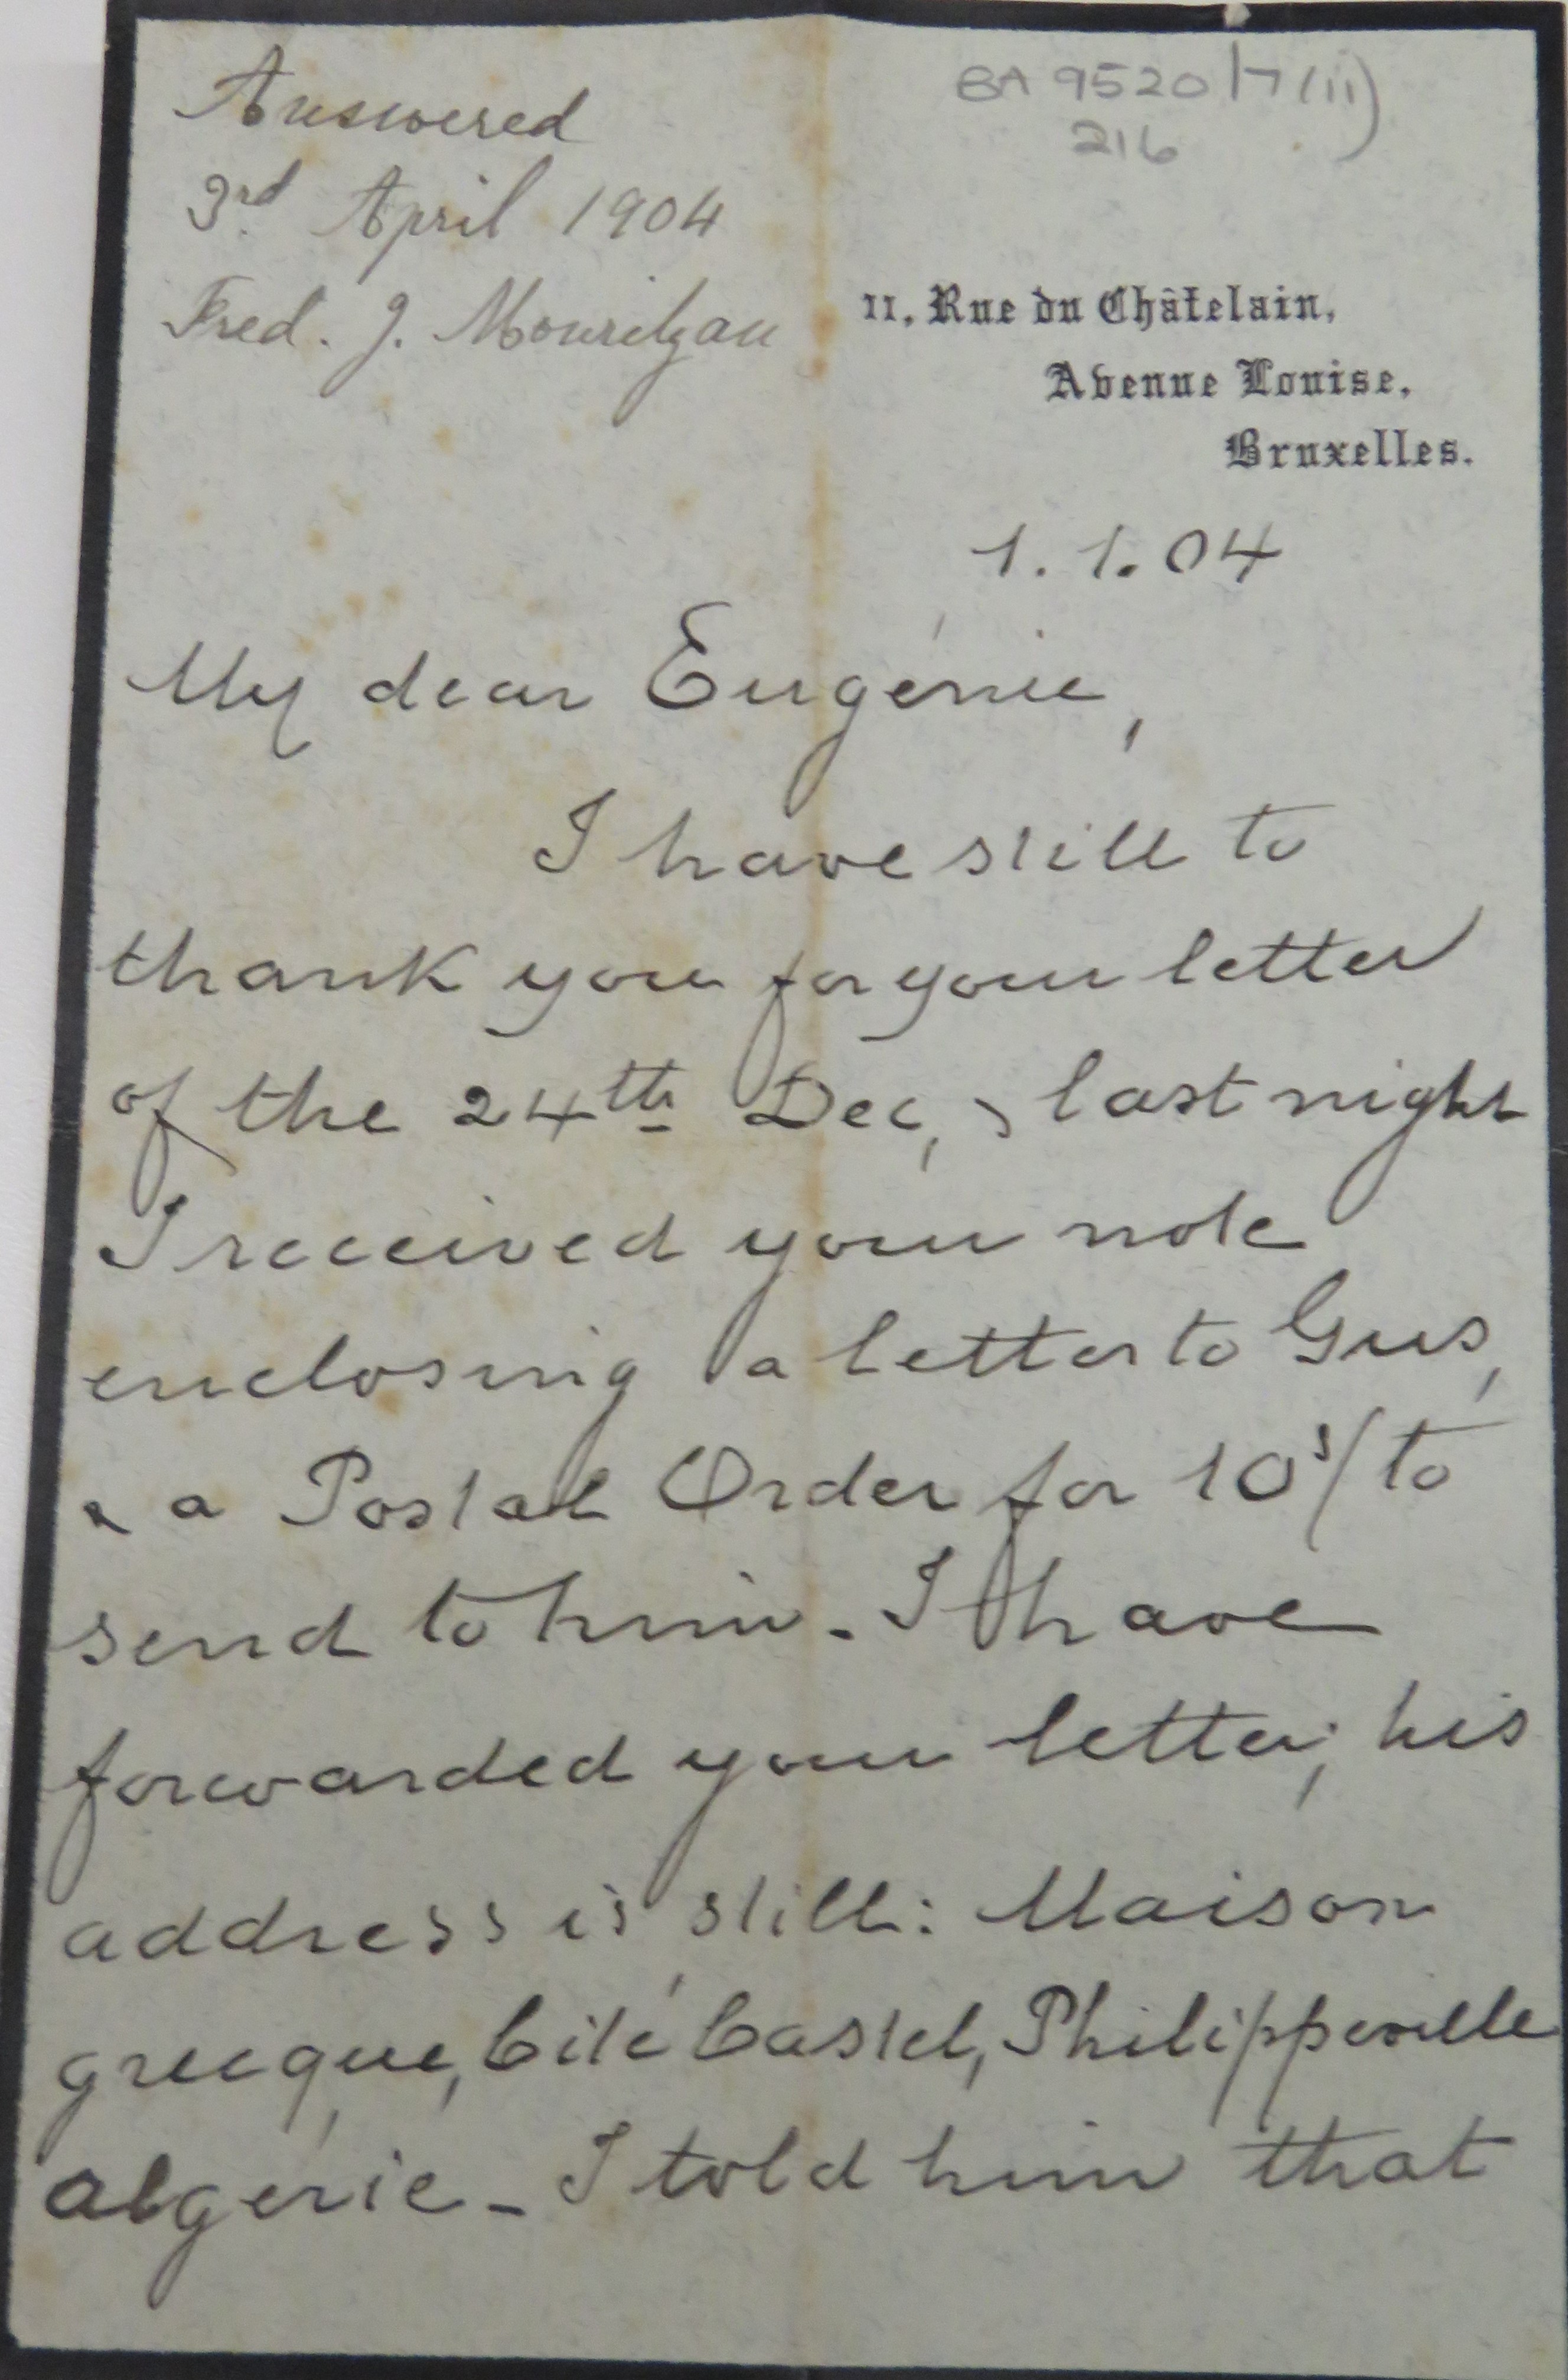 Answered
3rd April 1904
Fred. J. Mouritzau
BA 9520/7(ii)
216
11, Rue du Châtelain,
Avenue Louise,
Bruxelles.
1.1.04
My dear Eugénie,
I have still to
thank you for your letter
of the 24th Dec, & last night
I received your note
enclosing a letter to Gus,
& a Postal Order for 10s/ to
send to him - I have
forwarded your letter; his
address is still: Maison
grecque, Cité Castel, Philippeville
Algérie - I told him that